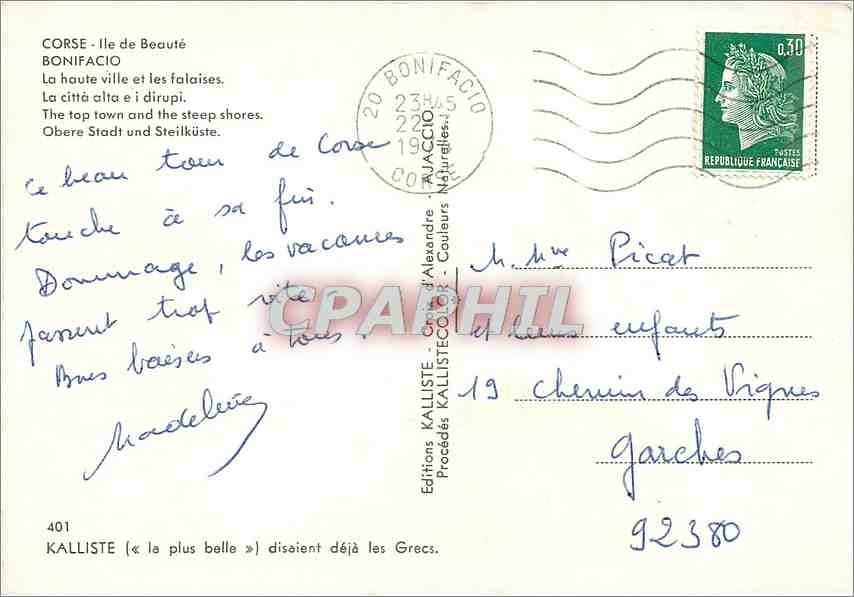 CORSE - Ile de Beauté
BONIFACIO
La haute ville et les falaises.
La città alta e i dirupi.
The top town and the steep shores.
Obere Stadt und Steilküste.
Ce beau tour de Corse
touche à sa fin.
Dommage, les vacances
passent trop vite.
Bons baisers à tous.
Madeleine
401
KALLISTE (« la plus belle ») disaient déjà les Grecs.
Editions KALLISTE - Croix d'Alexandre - AJACCIO
Procédés KALLISTECOLOR - Couleurs Naturelles.
CPARPHIL
20 BONIFACIO
23H45
22
19
CORSE
0,30
POSTES
REPUBLIQUE FRANÇAISE
M. Mme Picat
et leurs enfants
19 Chemin des Vignes
Garches
92380